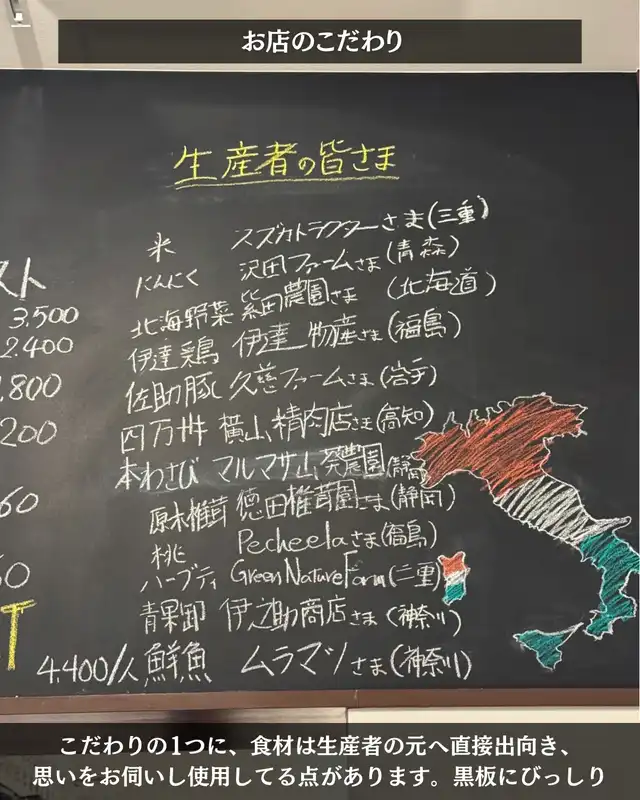 お店のこだわり
生産者の皆さま
米 スズカトラクターさま(三重)
にんにく 沢田ファームさま(青森)
北海野菜 柴田農園さま (北海道)
伊達鶏 伊達物産さま(福島)
佐助豚 久慈ファームさま(岩手)
四万十牛 横山精肉店さま(高知)
本わさび マルマサ山葵農園(静岡
原木椎茸 徳田椎茸園さま(静岡)
桃 Pecheelaさま(福島)
ハーブティ GreenNatureFarm(三重)
青果卸 伊之助商店さま(神奈川)
鮮魚 ムラマツさま(神奈川)
スト
3.500
2.400
.800
200
60
50
T
4.400/人
こだわりの1つに、食材は生産者の元へ直接出向き、
思いをお伺いし使用してる点があります。黒板にびっしり